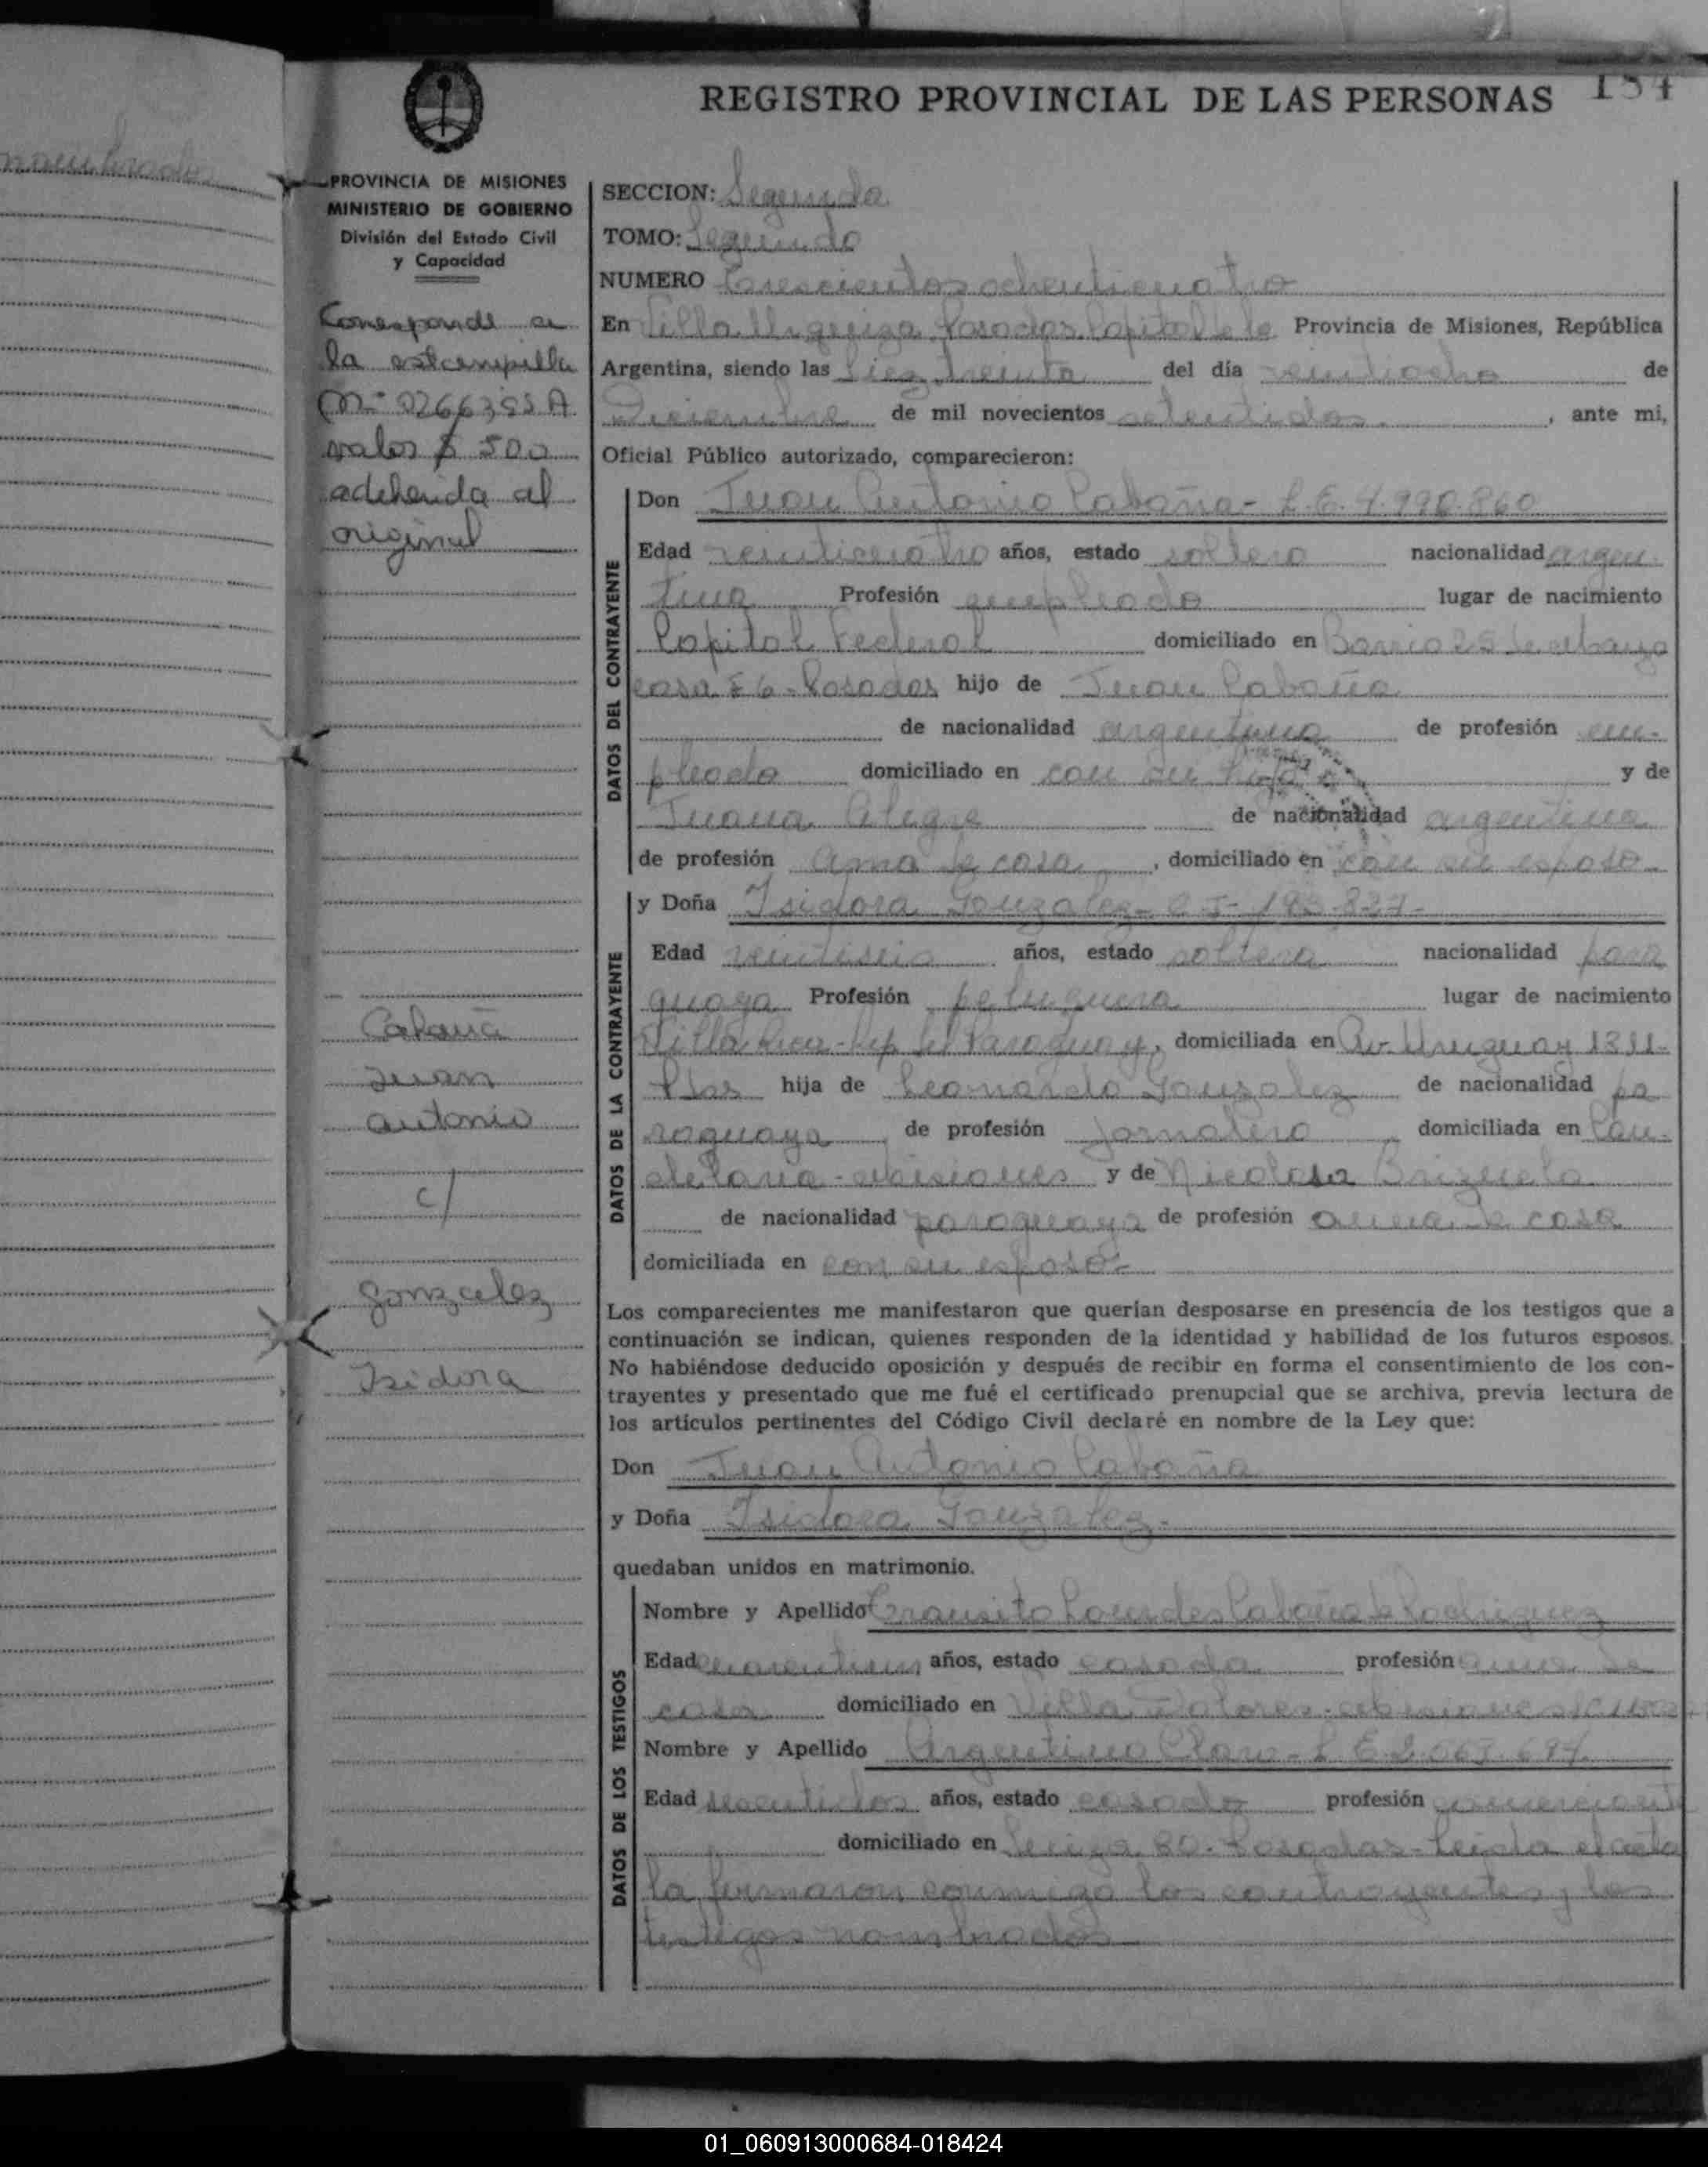 nombrados
REGISTRO PROVINCIAL DE LAS PERSONAS 184
PROVINCIA DE MISIONES
MINISTERIO DE GOBIERNO
División del Estado Civil
y Capacidad
Corresponde a
la estampilla
valor $ 500
adherida al
original
Cabaña
Juan
Antonio
c/
Gonzalez
Isidora
SECCION: Segunda
TOMO: Segundo
NUMERO Trescientos ochenticuatro
En Villa Urquiza Posadas Capital de la Provincia de Misiones, República
Argentina, siendo las diez treinta del día veintiocho de
Diciembre de mil novecientos setentidos , ante mi,
Oficial Público autorizado, comparecieron:
DATOS DEL CONTRAYENTE
Don Juan Antonio Cabaña - L.E. 4.990.860
Edad veinticuatro años, estado soltero nacionalidad argen
tina Profesión empleado lugar de nacimiento
Capital Federal domiciliado en Barrio 25 de Mayo
casa Posadas hijo de Juan Cabaña
de nacionalidad argentina de profesión em-
pleado domiciliado en con su hijo y de
Juana Alegre de nacionalidad argentina
de profesión ama de casa , domiciliado en con su esposo
DATOS DE LA CONTRAYENTE
y Doña Isidora Gonzalez - C I -
Edad veintiseis años, estado soltera nacionalidad para
guaya Profesión peluquera lugar de nacimiento
Villa Rica - Rep. del Paraguay, domiciliada en Av. Uruguay 1311-
Pdas hija de Leonardo Gonzalez de nacionalidad pa
raguaya de profesión jornalero domiciliada en Can-
delaria - Misiones y de Nicolasa Brizuela
de nacionalidad paraguaya de profesión ama de casa
domiciliada en con su esposo -
Los comparecientes me manifestaron que querían desposarse en presencia de los testigos que a
continuación se indican, quienes responden de la identidad y habilidad de los futuros esposos.
No habiéndose deducido oposición y después de recibir en forma el consentimiento de los con-
trayentes y presentado que me fué el certificado prenupcial que se archiva, previa lectura de
los artículos pertinentes del Código Civil declaré en nombre de la Ley que:
Don Juan Antonio Cabaña
y Doña Isidora Gonzalez -
quedaban unidos en matrimonio.
DATOS DE LOS TESTIGOS
Nombre y Apellido Transito Lourdes Cabaña de Rodriguez
Edad años, estado casada profesión ama de
casa domiciliado en Villa Dolores - Misiones
Nombre y Apellido Argentino Claro - L E 2.063.694
Edad sesentidos años, estado casado profesión comerciante
domiciliado en 80 - Posadas - Leida el acta
la firmaron conmigo los contrayentes y los
testigos nombrados
01_060913000684-018424